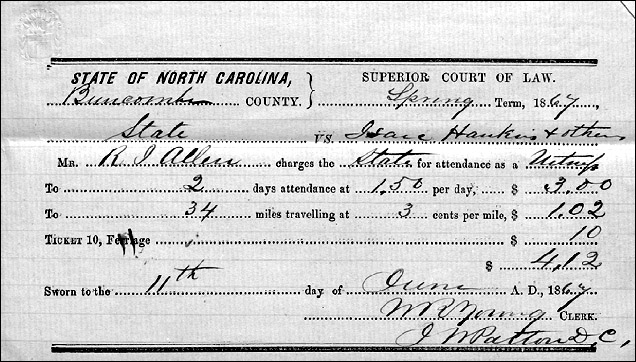 STATE OF NORTH CAROLINA, } SUPERIOR COURT OF LAW.
Buncombe COUNTY. } Spring Term, 1867
State VS. Isaac Hawkins & others
MR. R J Allen charges the State for attendance as a Witness
To 2 days attendance at 1.50 per day, $ 3.00
To 34 miles travelling at 3 cents per mile, $ 1.02
TICKET 10, Ferriage $ 10
$ 4,12
Sworn to the 11th day of June A. D., 1867
W R Young CLERK.
J W Patton D, C,